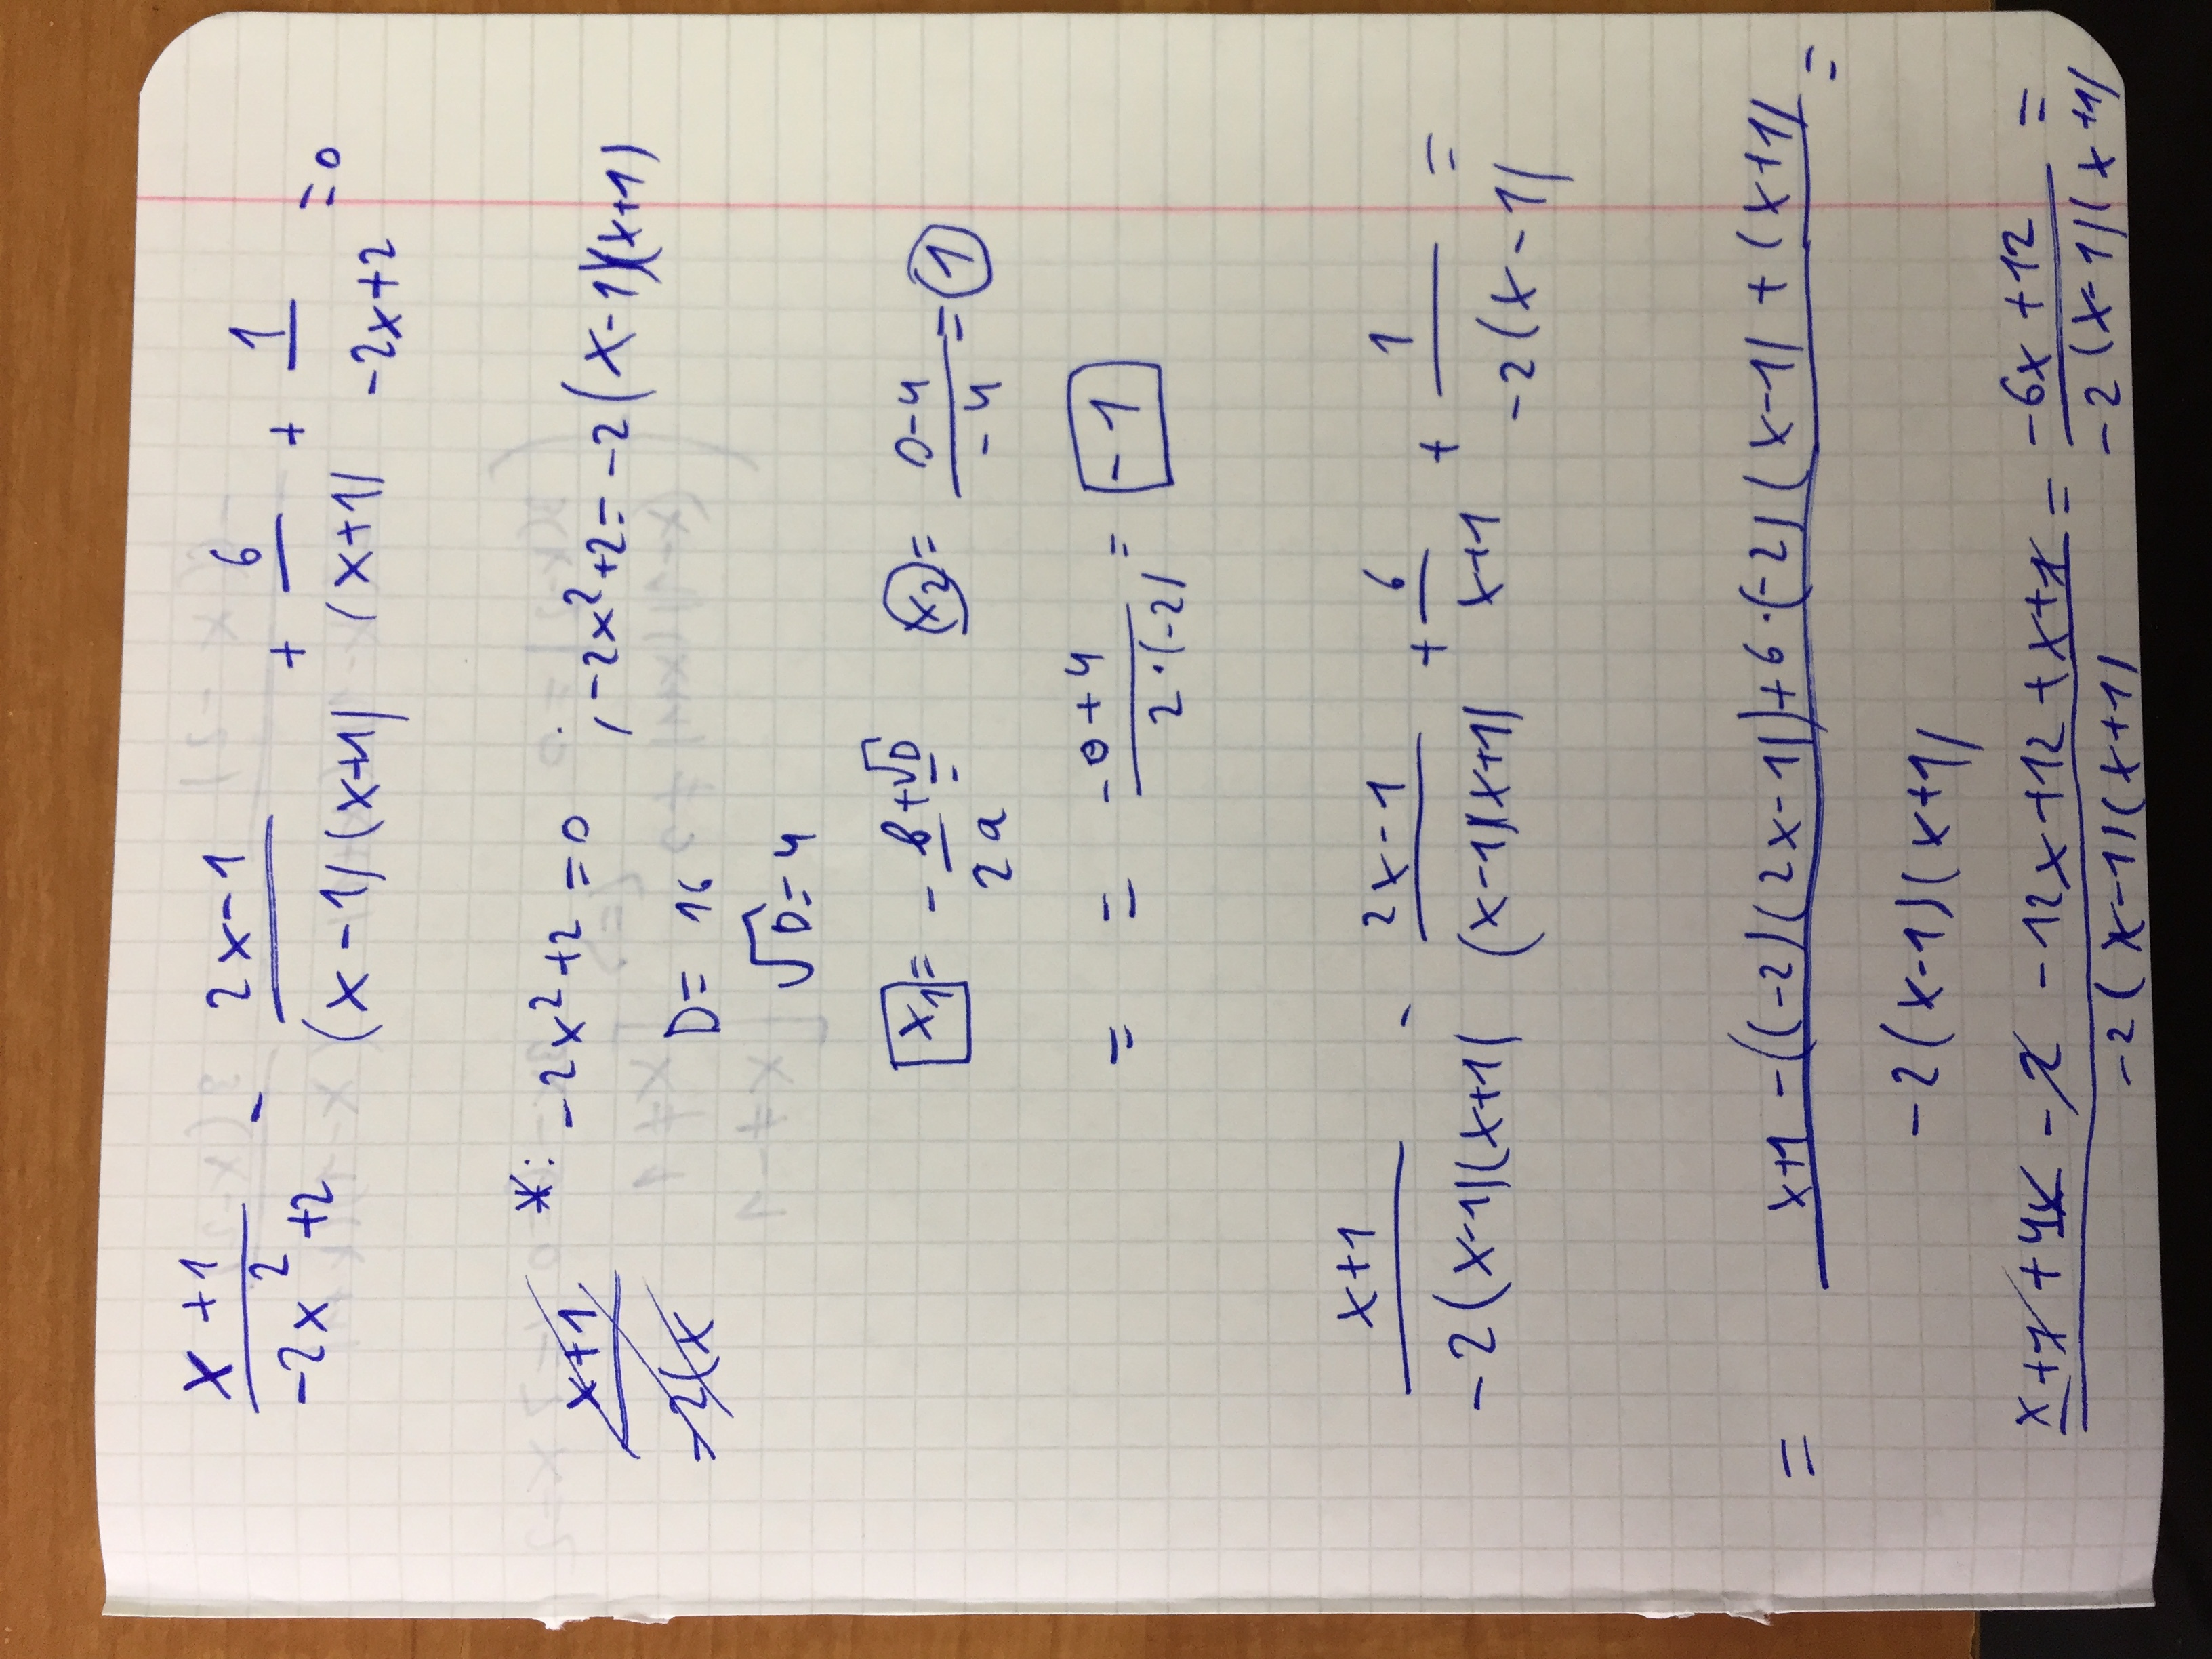 x+1 / -2x²+2 - 2x-1 / (x-1)(x+1) + 6 / (x+1) + 1 / -2x+2 = 0
x+1 / -2(x
*: -2x²+2=0 , -2x²+2= -2(x-1)(x+1)
D= 16
√D=4
x₁= -b+√D / 2a = x₂= 0-4 / -4 = 1
= = -0+4 / 2·(-2) = -1
x+1 / -2(x-1)(x+1) - 2x-1 / (x-1)(x+1) + 6 / x+1 + 1 / -2(x-1) =
= x+1 -((-2)(2x-1))+6·(-2)(x-1)+(x+1) / -2(x-1)(x+1) =
x+1+4x-2-12x+12+x+1 / -2(x-1)(x+1) = -6x+12 / -2(x-1)(x+1) =